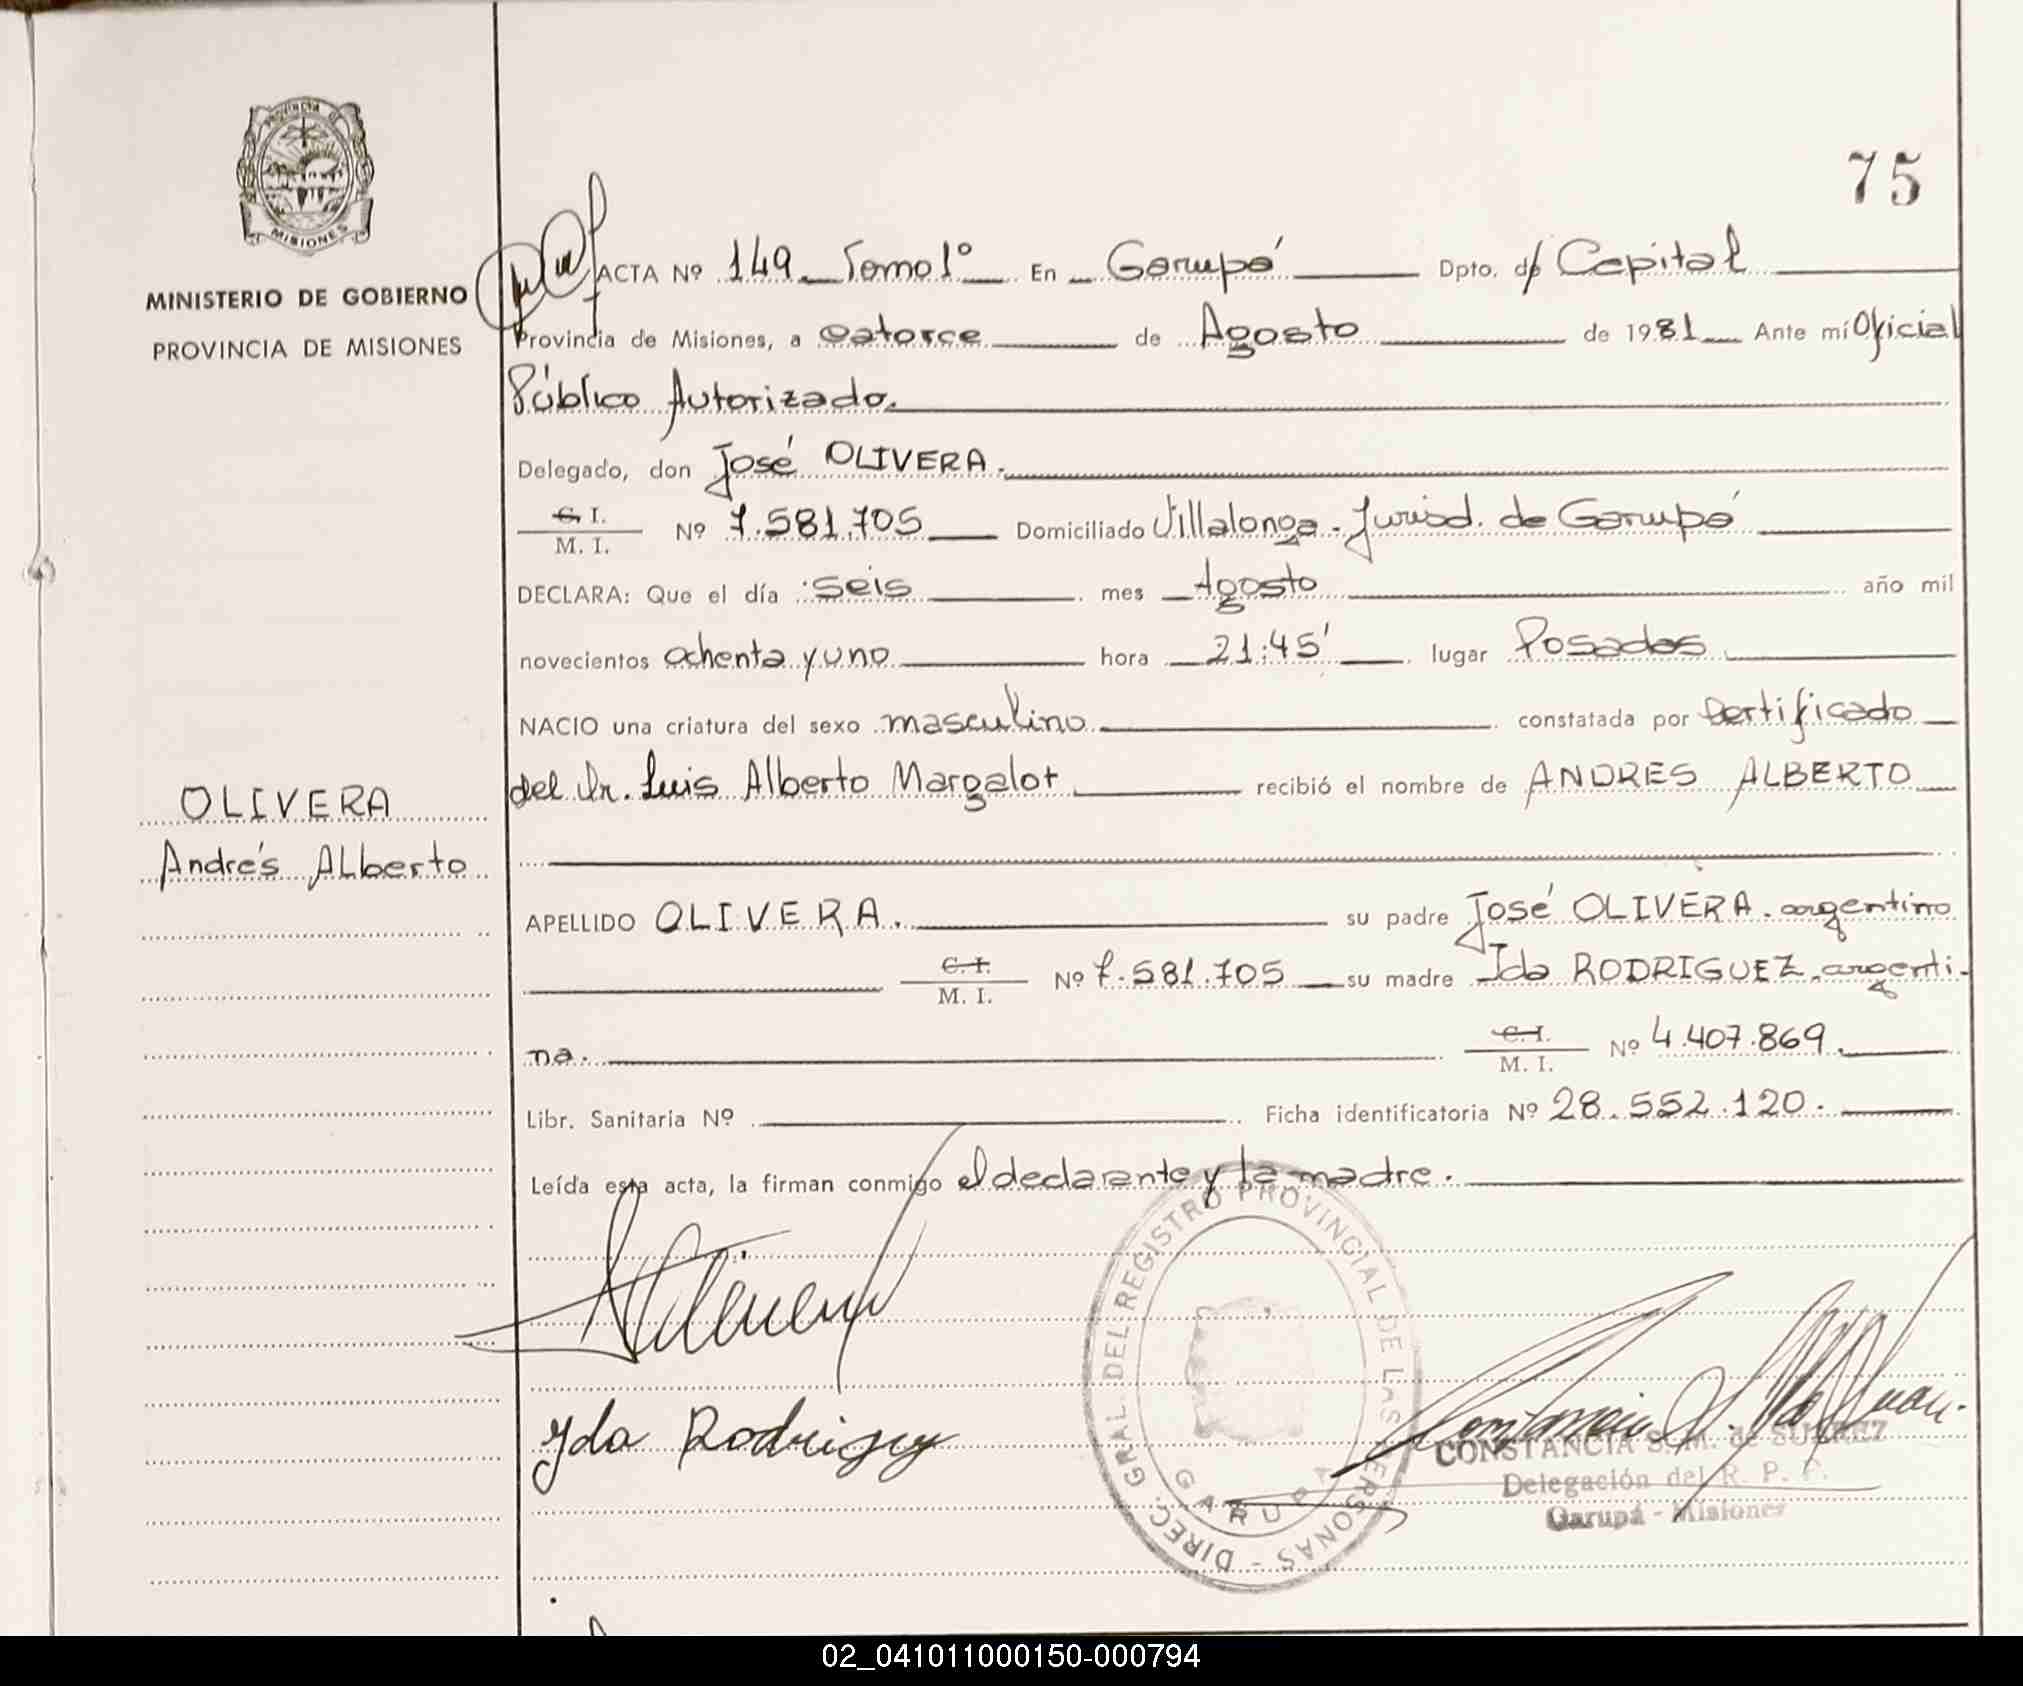 Provincia de
MISIONES
MINISTERIO DE GOBIERNO
PROVINCIA DE MISIONES
75
ACTA Nº 149 Tomo 1º En Garupá Dpto. de Capital
Provincia de Misiones, a catorce de Agosto de 1981 Ante mí Oficial
Público Autorizado.
Delegado, don José OLIVERA.
C. I.
M. I. Nº 7.581.705 Domiciliado Villalonga - Jurisd. de Garupá
DECLARA: Que el día seis mes Agosto año mil
novecientos ochenta y uno hora 21:45' lugar Posadas
NACIO una criatura del sexo masculino constatada por Certificado
del Dr. Luis Alberto Margalot recibió el nombre de ANDRES ALBERTO
OLIVERA
Andrés ALberto
APELLIDO OLIVERA. su padre José OLIVERA. argentino
C. I.
M. I. Nº 7.581.705 su madre Ida RODRIGUEZ, argenti-
na.
C. I.
M. I. Nº 4.407.869.
Libr. Sanitaria Nº Ficha identificatoria Nº 28.552.120.
Leída esta acta, la firman conmigo el declarante y la madre.
DIREC. GRAL. DEL REGISTRO PROVINCIAL DE LAS PERSONAS -
GARUPA
Yda Rodriguez
CONSTANCIA S. M. de SUAREZ
Delegación del R. P. P.
Garupá - Misiones
02_041011000150-000794